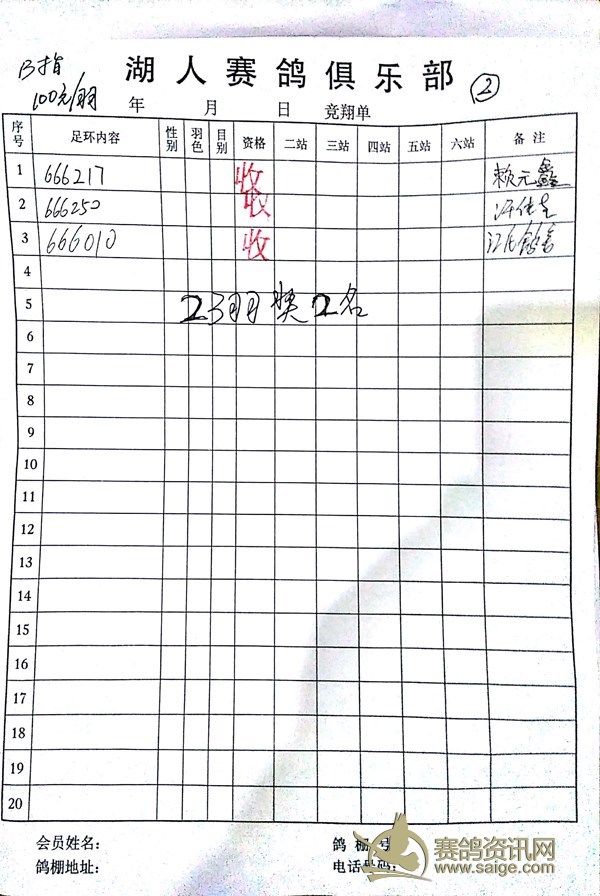 B指
湖人赛鸽俱乐部 ②
100元/羽 年 月 日 竞翔单
序号 足环内容 性别 羽色 目别 资格 二站 三站 四站 五站 六站 备注
1 666217 收 赖元鑫
2 666250 收
3 666010 收
4
5 23羽奖2名
6
7
8
9
10
11
12
13
14
15
16
17
18
19
20
会员姓名: 鸽棚号
鸽棚地址: 电话号码:
赛鸽资讯网
www.saige.com